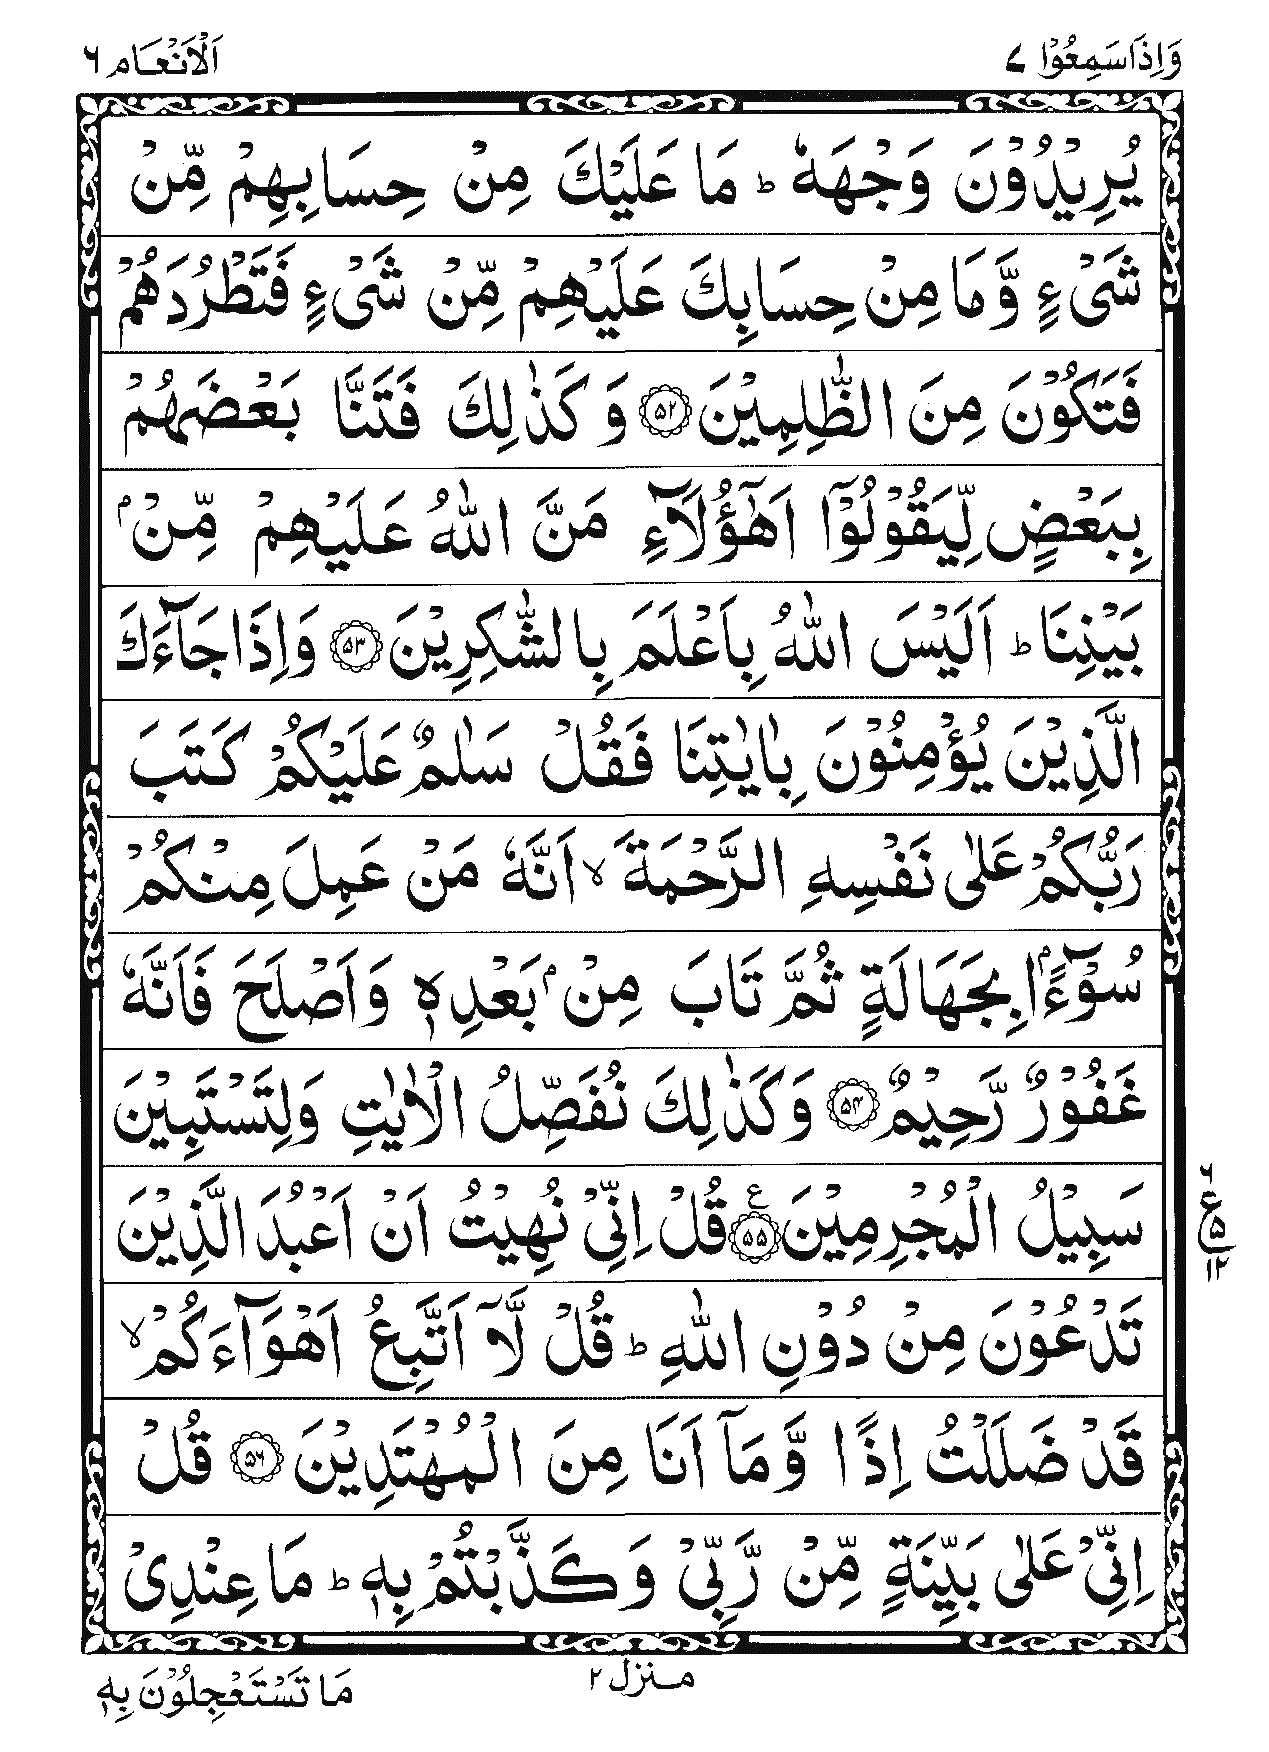 وَاِذَا سَمِعُوْا ۷
اَلْاَنْعَام ۶
يُرِيْدُوْنَ وَجْهَهٗ ؕ مَا عَلَيْكَ مِنْ حِسَابِهِمْ مِّنْ
شَیْءٍ وَّمَا مِنْ حِسَابِكَ عَلَيْهِمْ مِّنْ شَیْءٍ فَتَطْرُدَهُمْ
فَتَكُوْنَ مِنَ الظّٰلِمِيْنَ ﴿۵۲﴾ وَ كَذٰلِكَ فَتَنَّا بَعْضَهُمْ
بِبَعْضٍ لِّيَقُوْلُوْۤا اَهٰۤؤُلَآءِ مَنَّ اللّٰهُ عَلَيْهِمْ مِّنْۢ
بَيْنِنَا ؕ اَلَيْسَ اللّٰهُ بِاَعْلَمَ بِالشّٰكِرِيْنَ ﴿۵۳﴾ وَاِذَا جَآءَكَ
الَّذِيْنَ يُؤْمِنُوْنَ بِاٰيٰتِنَا فَقُلْ سَلٰمٌ عَلَيْكُمْ كَتَبَ
رَبُّكُمْ عَلٰى نَفْسِهِ الرَّحْمَةَ ۙ اَنَّهٗ مَنْ عَمِلَ مِنْكُمْ
سُوْٓءًۢا بِجَهَالَةٍ ثُمَّ تَابَ مِنْۢ بَعْدِهٖ وَاَصْلَحَ فَاَنَّهٗ
غَفُوْرٌ رَّحِيْمٌ ﴿۵۴﴾ وَكَذٰلِكَ نُفَصِّلُ الْاٰيٰتِ وَلِتَسْتَبِيْنَ
سَبِيْلُ الْمُجْرِمِيْنَ ﴿۵۵﴾ ع قُلْ اِنِّیْ نُهِيْتُ اَنْ اَعْبُدَ الَّذِيْنَ
۶
ع ۵
۱۲
تَدْعُوْنَ مِنْ دُوْنِ اللّٰهِ ؕ قُلْ لَّاۤ اَتَّبِعُ اَهْوَآءَكُمْ ۙ
قَدْ ضَلَلْتُ اِذًا وَّمَاۤ اَنَا مِنَ الْمُهْتَدِيْنَ ﴿۵۶﴾ قُلْ
اِنِّیْ عَلٰى بَيِّنَةٍ مِّنْ رَّبِّیْ وَكَذَّبْتُمْ بِهٖ ؕ مَا عِنْدِیْ
منزل ۲
مَا تَسْتَعْجِلُوْنَ بِهٖ